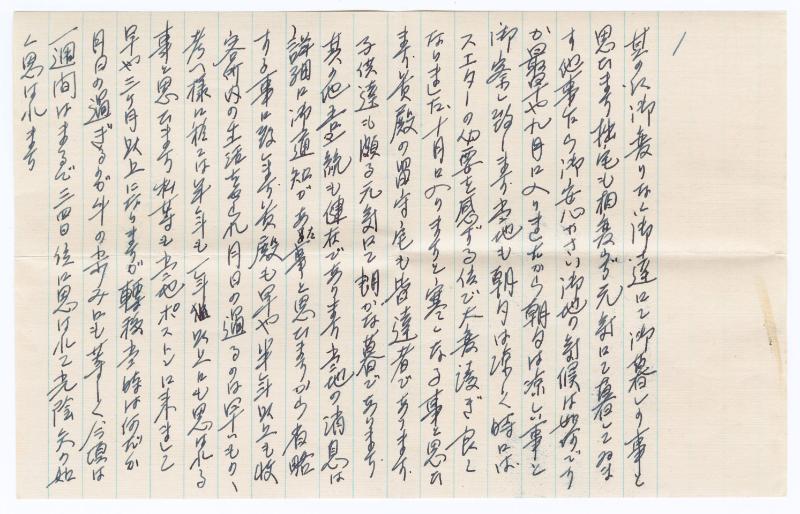 1
其の后御変りなく御達口て御暮しの事と
思ひます 拙宅も相変らず元気口て暮して居ま
す 他事乍ら御安心下さい 御地の気候は如何ですか
最早や九月口入りましたから朝夕は涼しい事と
御察し致します 当地も朝夕は涼しく時には
スエターの必要を感ずる位で大変凌ぎ良く
なりました 十月口入りますと寒くなる事と思ひ
ます 貴殿の留守宅も皆達者であります
子供達も頗る元気口て朗かな暮であります
其の他 一統も健在であります 当地の消息は
詳細口御通知があった事と思ひますから省略
する事口致します 貴殿も早や半年以上も収
容所内の生活をせられ月日の過るのは早いもの、
考へ様口依ては半年も一年以上口も思はれる
事と思ひます 私等も当地ポストン口来まして
早や三ヶ月以上になりますが轉住当時は何だか
月日の過ぎるのが牛の歩み口も等しく今頃は
一週間はまるで三四日位口思はれて光陰矢の如
く思はれます